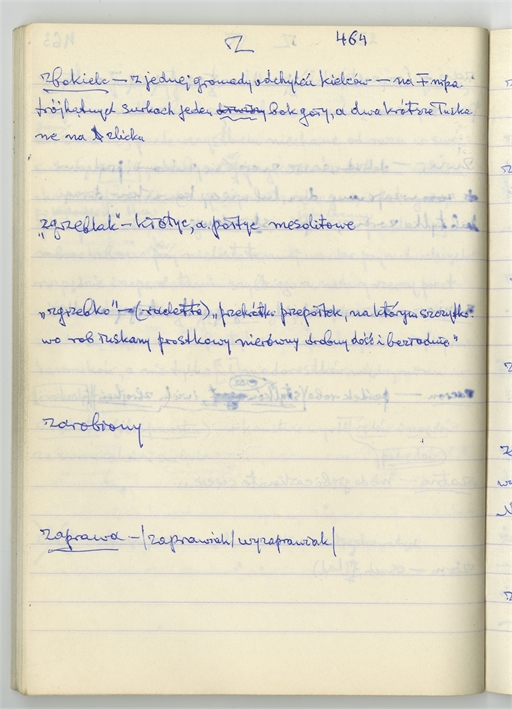 Z 464
zbokielc – z jednej gromady odchyleń kielców – na
trójkątnych surkach jeden bok goły, a dwa krótsze łuska
ne na zlicku
"zgrzeblak" – kłotyc, a. połtyc mesolitowe
"zgrzebko" – (racletto) "przekrótki przepołek, na którym szczytko
wo rob łuskany prostkowy nierówny drobny dość i bezradnie"
zdrobiony
zaprawa – / zaprawiak / wyzaprawiak /